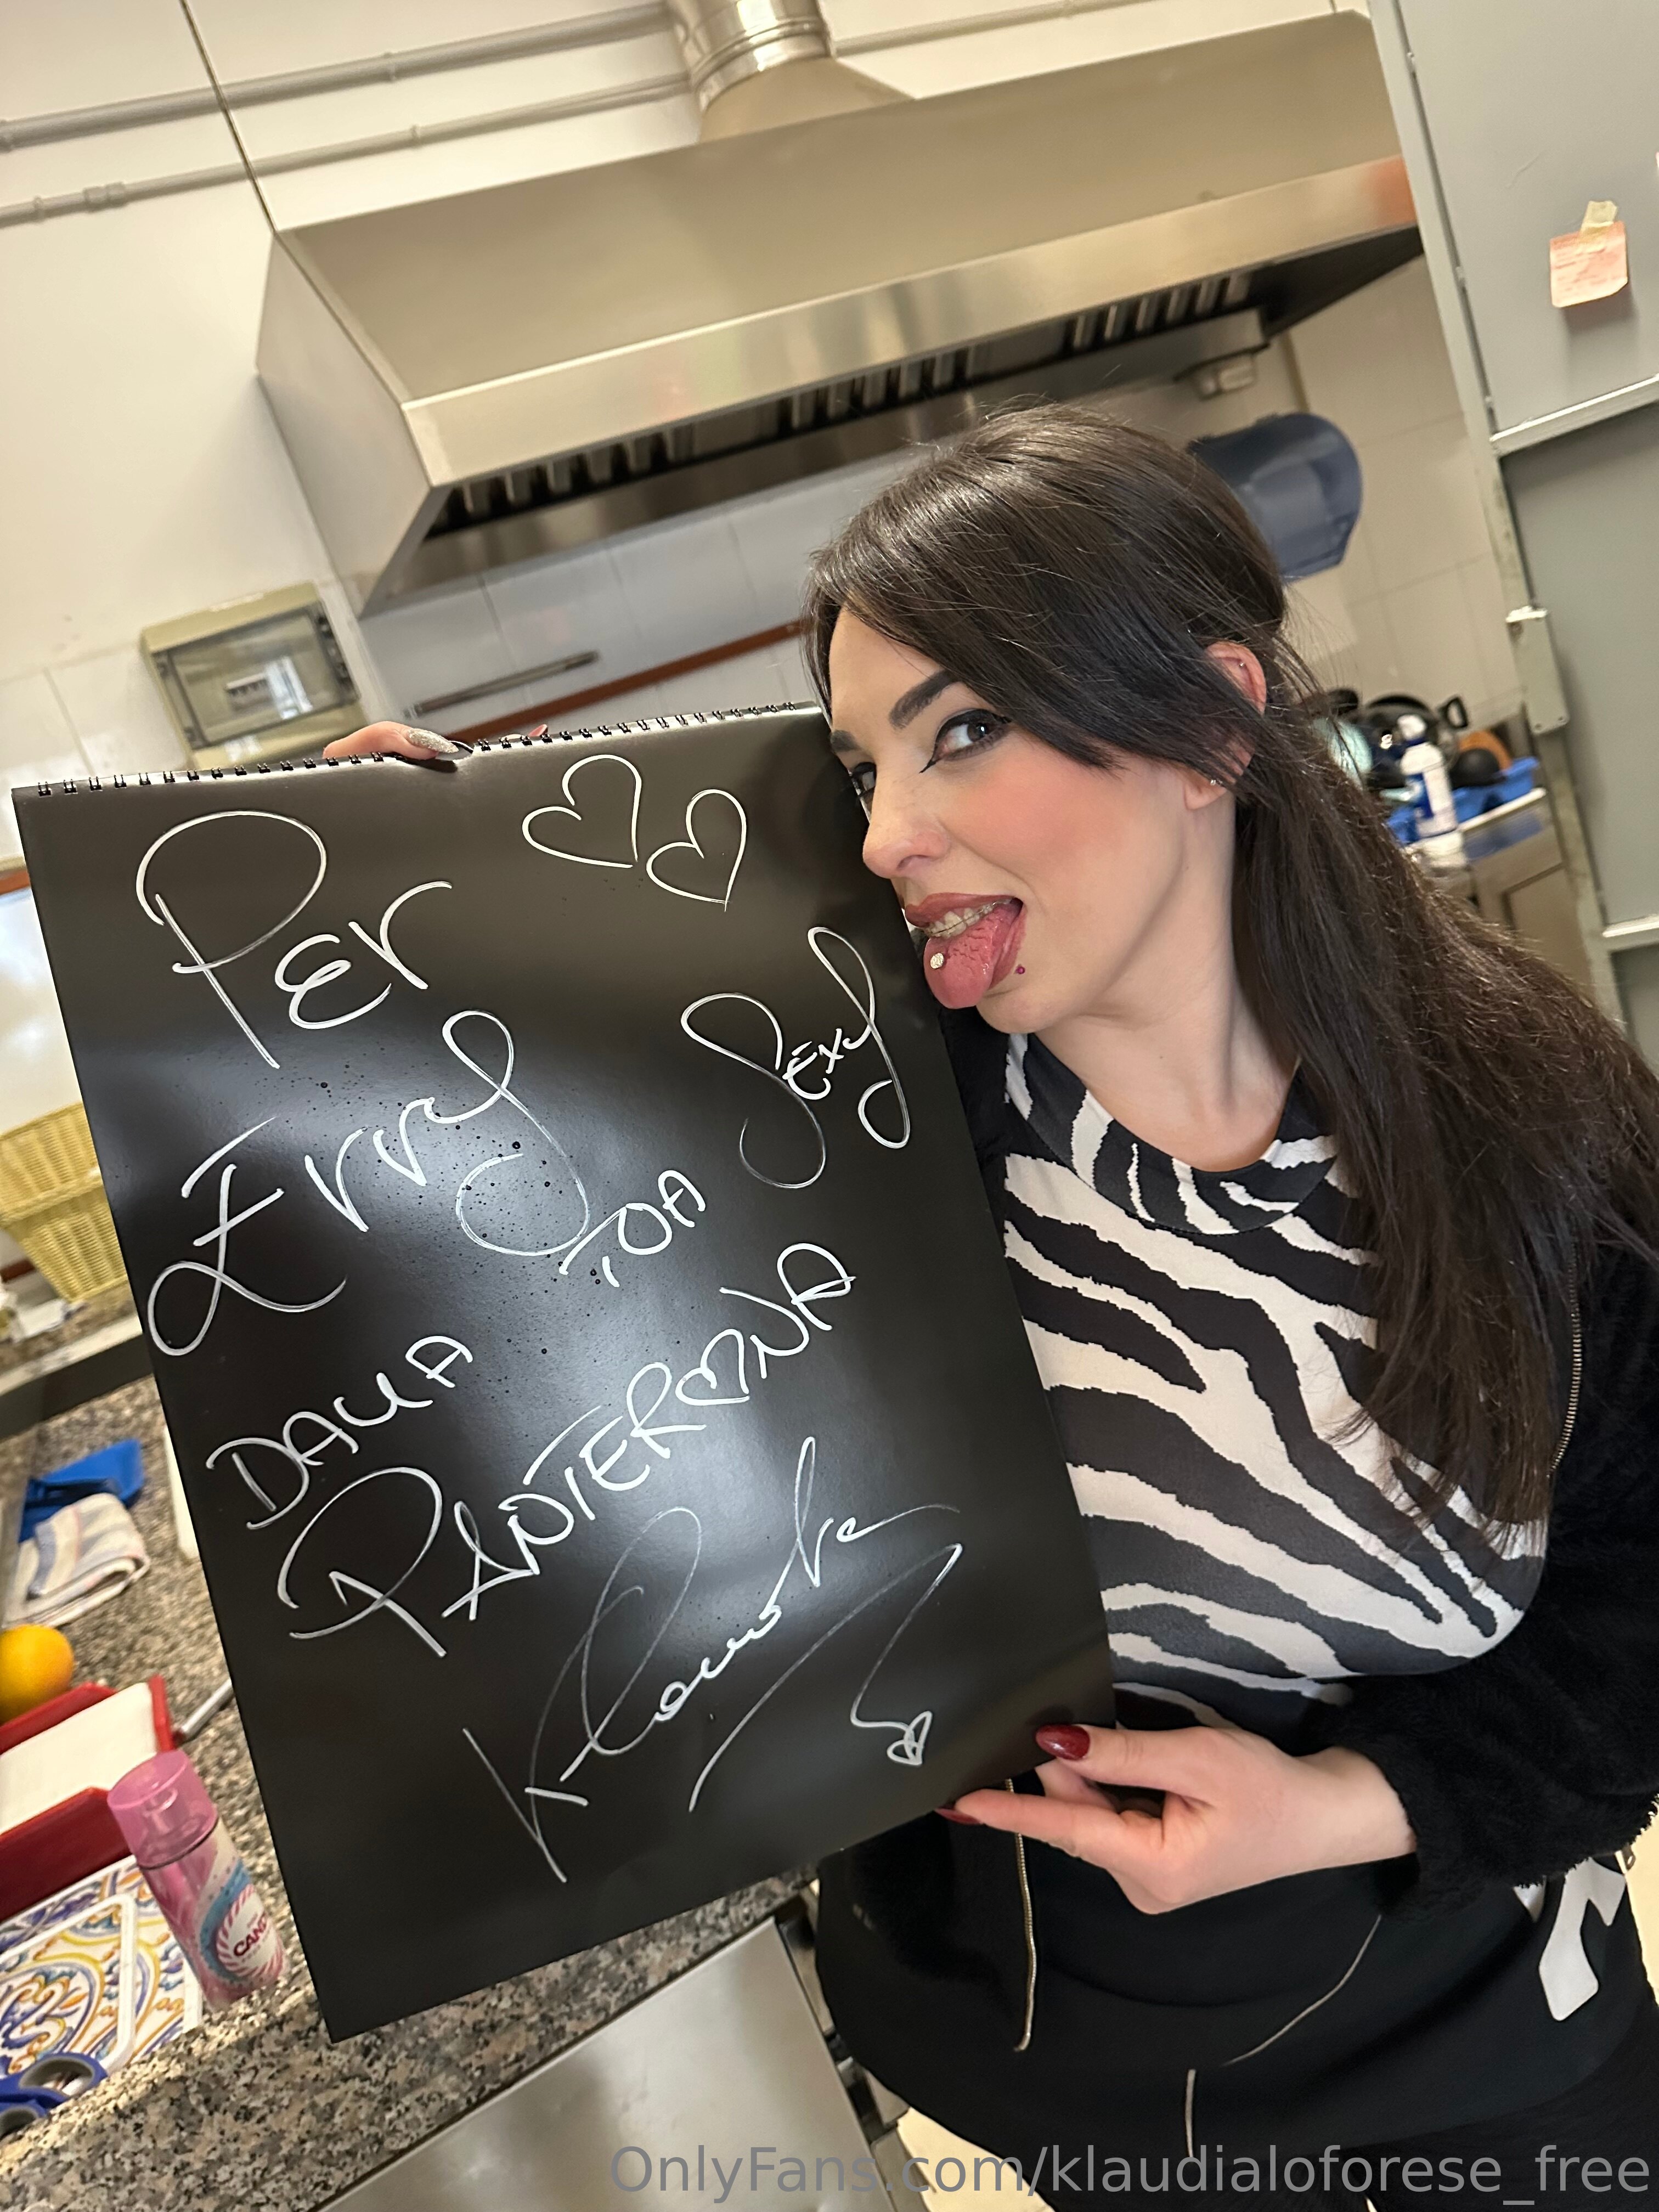 Per
Erry
DALLA TUA Sexy
PANTERONA
Klaudia
CAN
OnlyFans.com/klaudialoforese_free